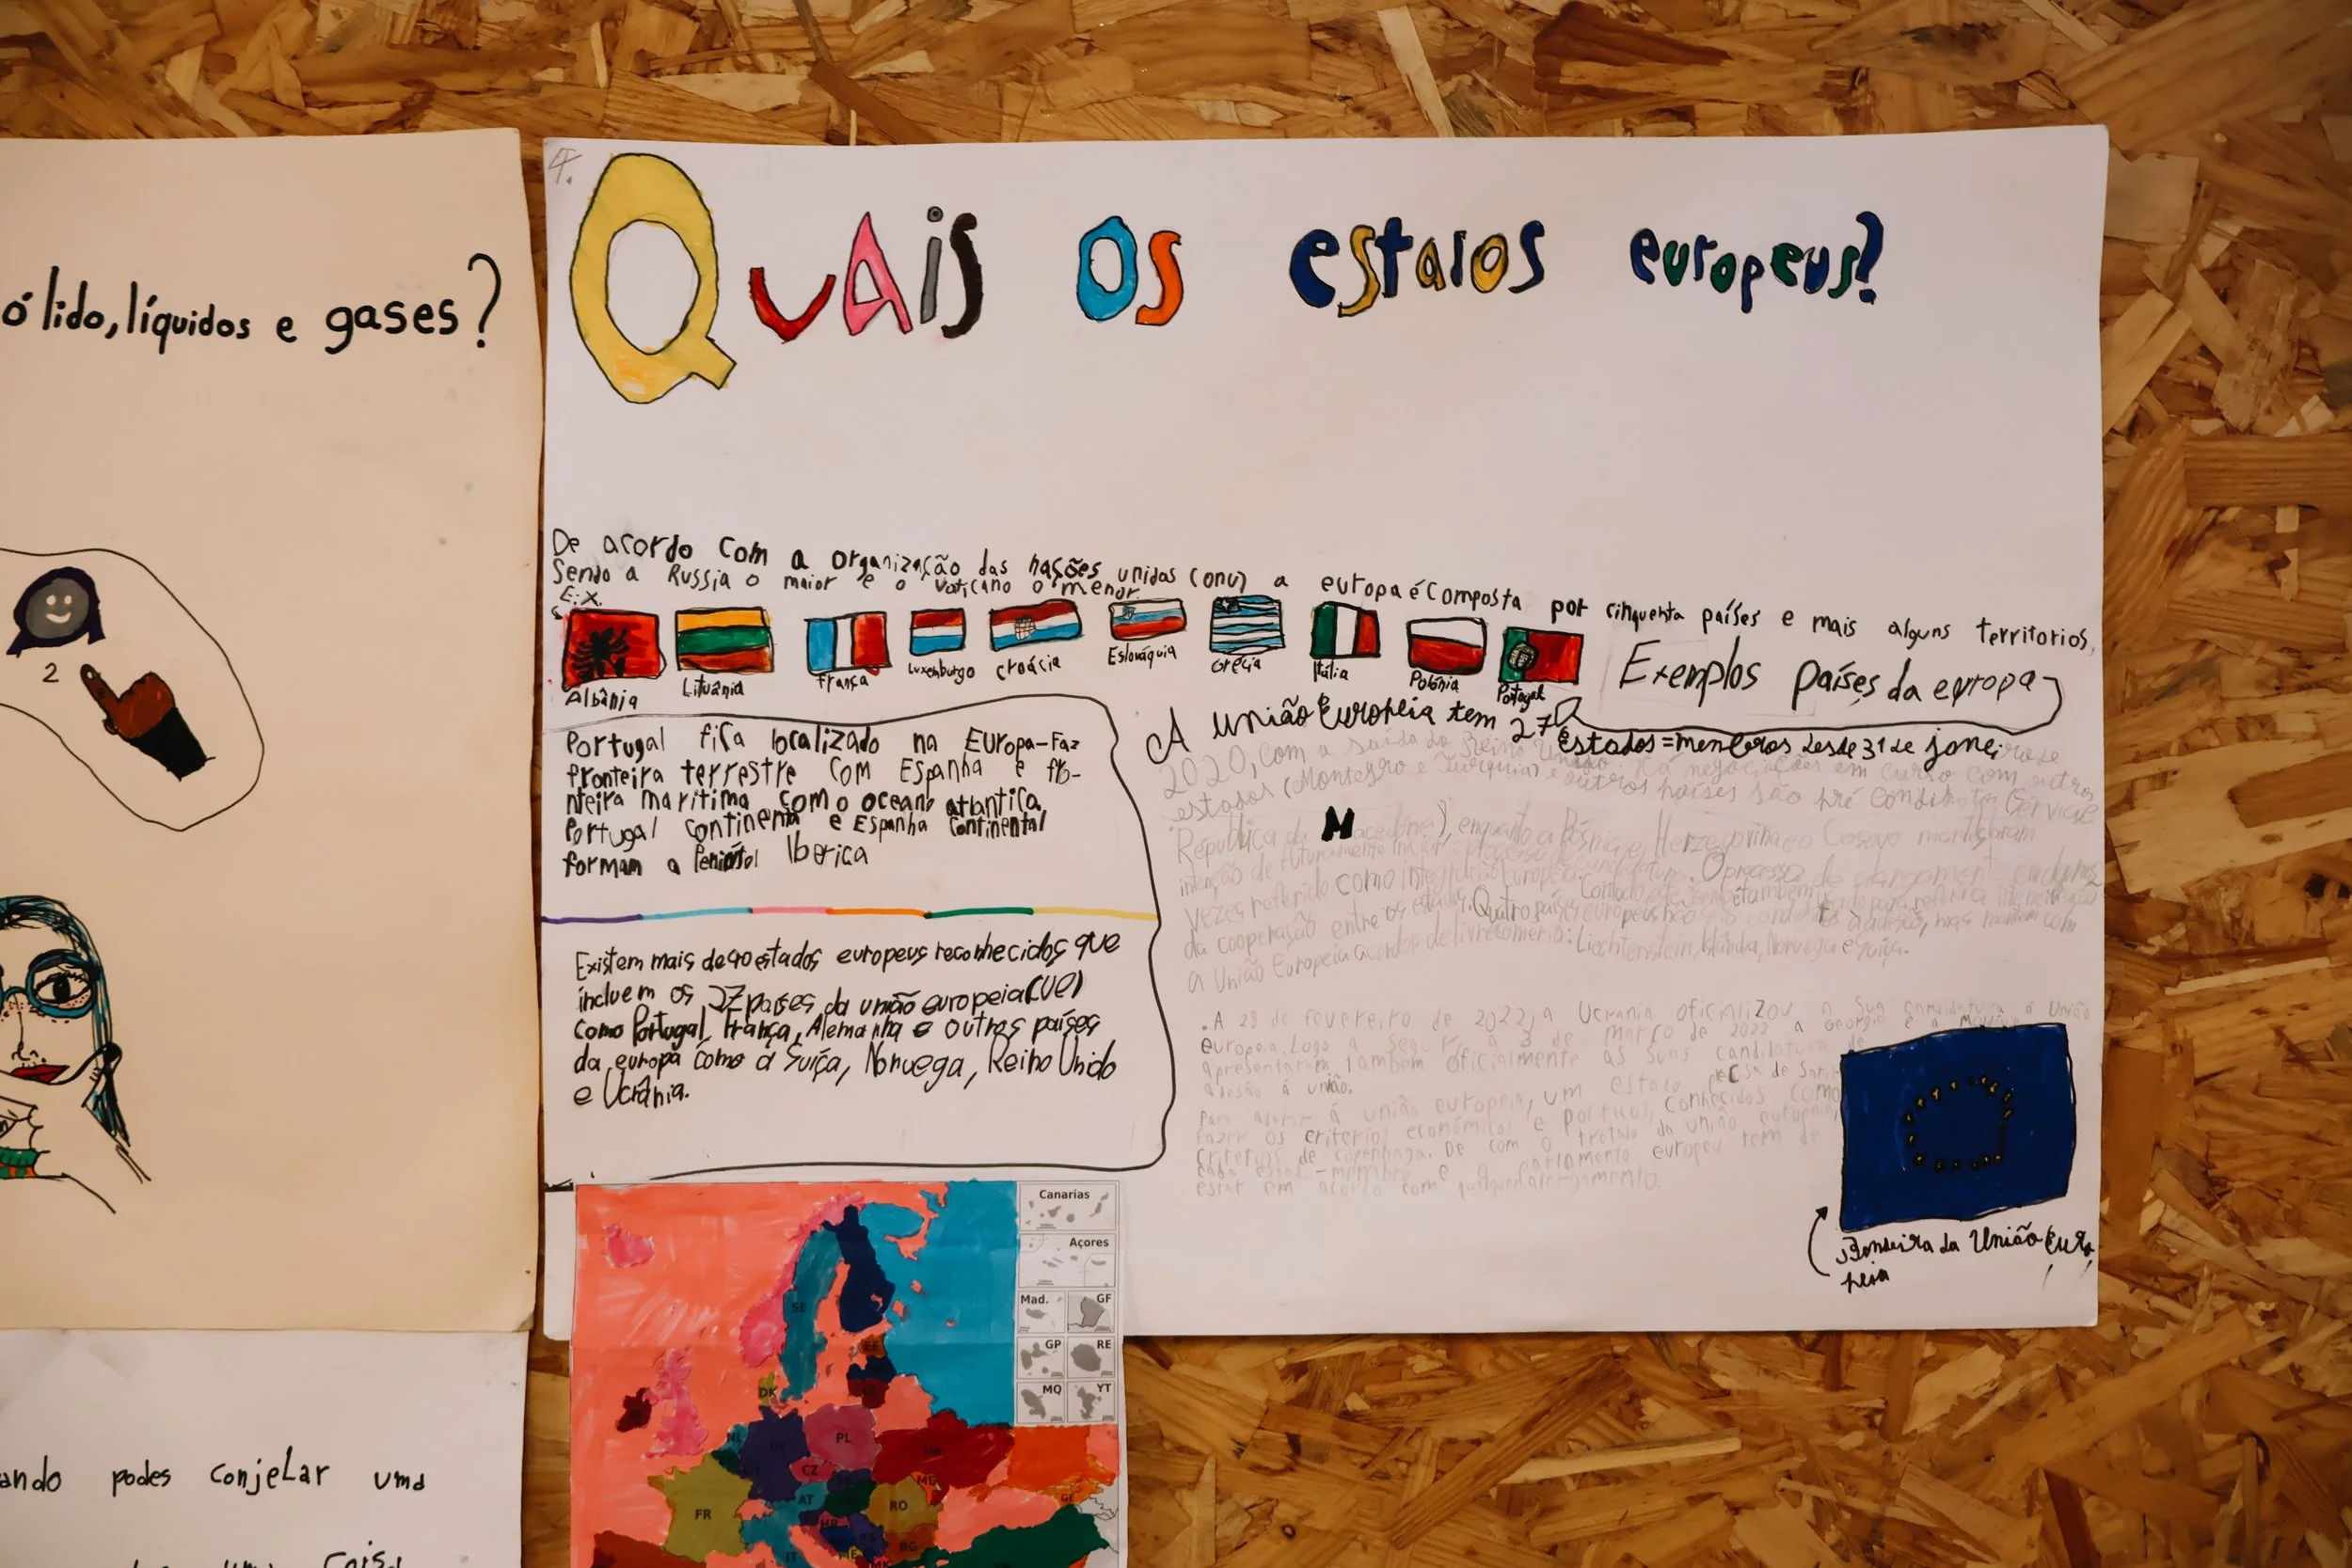 ólido, líquidos e gases?
2
ando podes conjeLar uma
uma coisa
4.
Quais os estaIos europeus?
De acordo com a organização das nações unidas (onu) a europa é composta por cinquenta países e mais alguns territorios,
Sendo a Russia o maior e o vaticano o menor.
E:X.
Albânia
Lituânia
França
Luxemburgo
croácia
Eslováquia
Grécia
Itália
Polónia
Portugal
Exemplos países da europa
Portugal fica localizado na Europa-Faz
fronteira terrestre com Espanha e fro-
nteira marítima com o oceano atlantica,
Portugal continental e Espanha Continental
formam a Iberica
Existem mais de 90 estados europeus reconhecidos que
incluem os 27 países da união europeia (UE)
como Portugal, França, Alemanha e outros países
da europa como a Suiça, Noruega, Reino Unido
e Ucrânia.
A União Europeia tem 27
estados=membros desde 31 de janeiro de
2020, com a saída do Reino Unido. Há negociações em curso com outros
estados (Montegro e Turquia) e outros países são pré
República da Macedónia), enquanto a Bósnia e Herzegovina e o Cosovo
intenção de futuramente O processo de
vezes referido como integração Europeia. Contudo também
da cooperação entre os estados. Quatro países europeus não são candidatos à adesão, mas mantem com
a União Europeia acordos de livre comério: Liechtenstein, Islândia, Noruega e Suiça.
. A 28 de fevereiro de 2022, a Ucrania oficializou a sua candidatura á União
europeia. Logo a seguir, a 3 de março de 2022 a Georgia e a
apresentaram tambem oficialmente as suas candidatura de
adesão á união.
Para aderir á união europeia, um estado
fazer os criterios económicos e politicos, conhecidos como
criterios de copenhaga. De com o tratado da união europeia,
cada estado-membro e o parlamento europeu tem de
estar em acordo com qualquer alargamento.
Bandeira da União Euro
peia
Canarias
Açores
Mad.
GF
GP
RE
MQ
YT
SE
EE
DK
NL
PL
CZ
MD
FR
AT
RO
GE
HR
RS
IT
ME
BG
MK